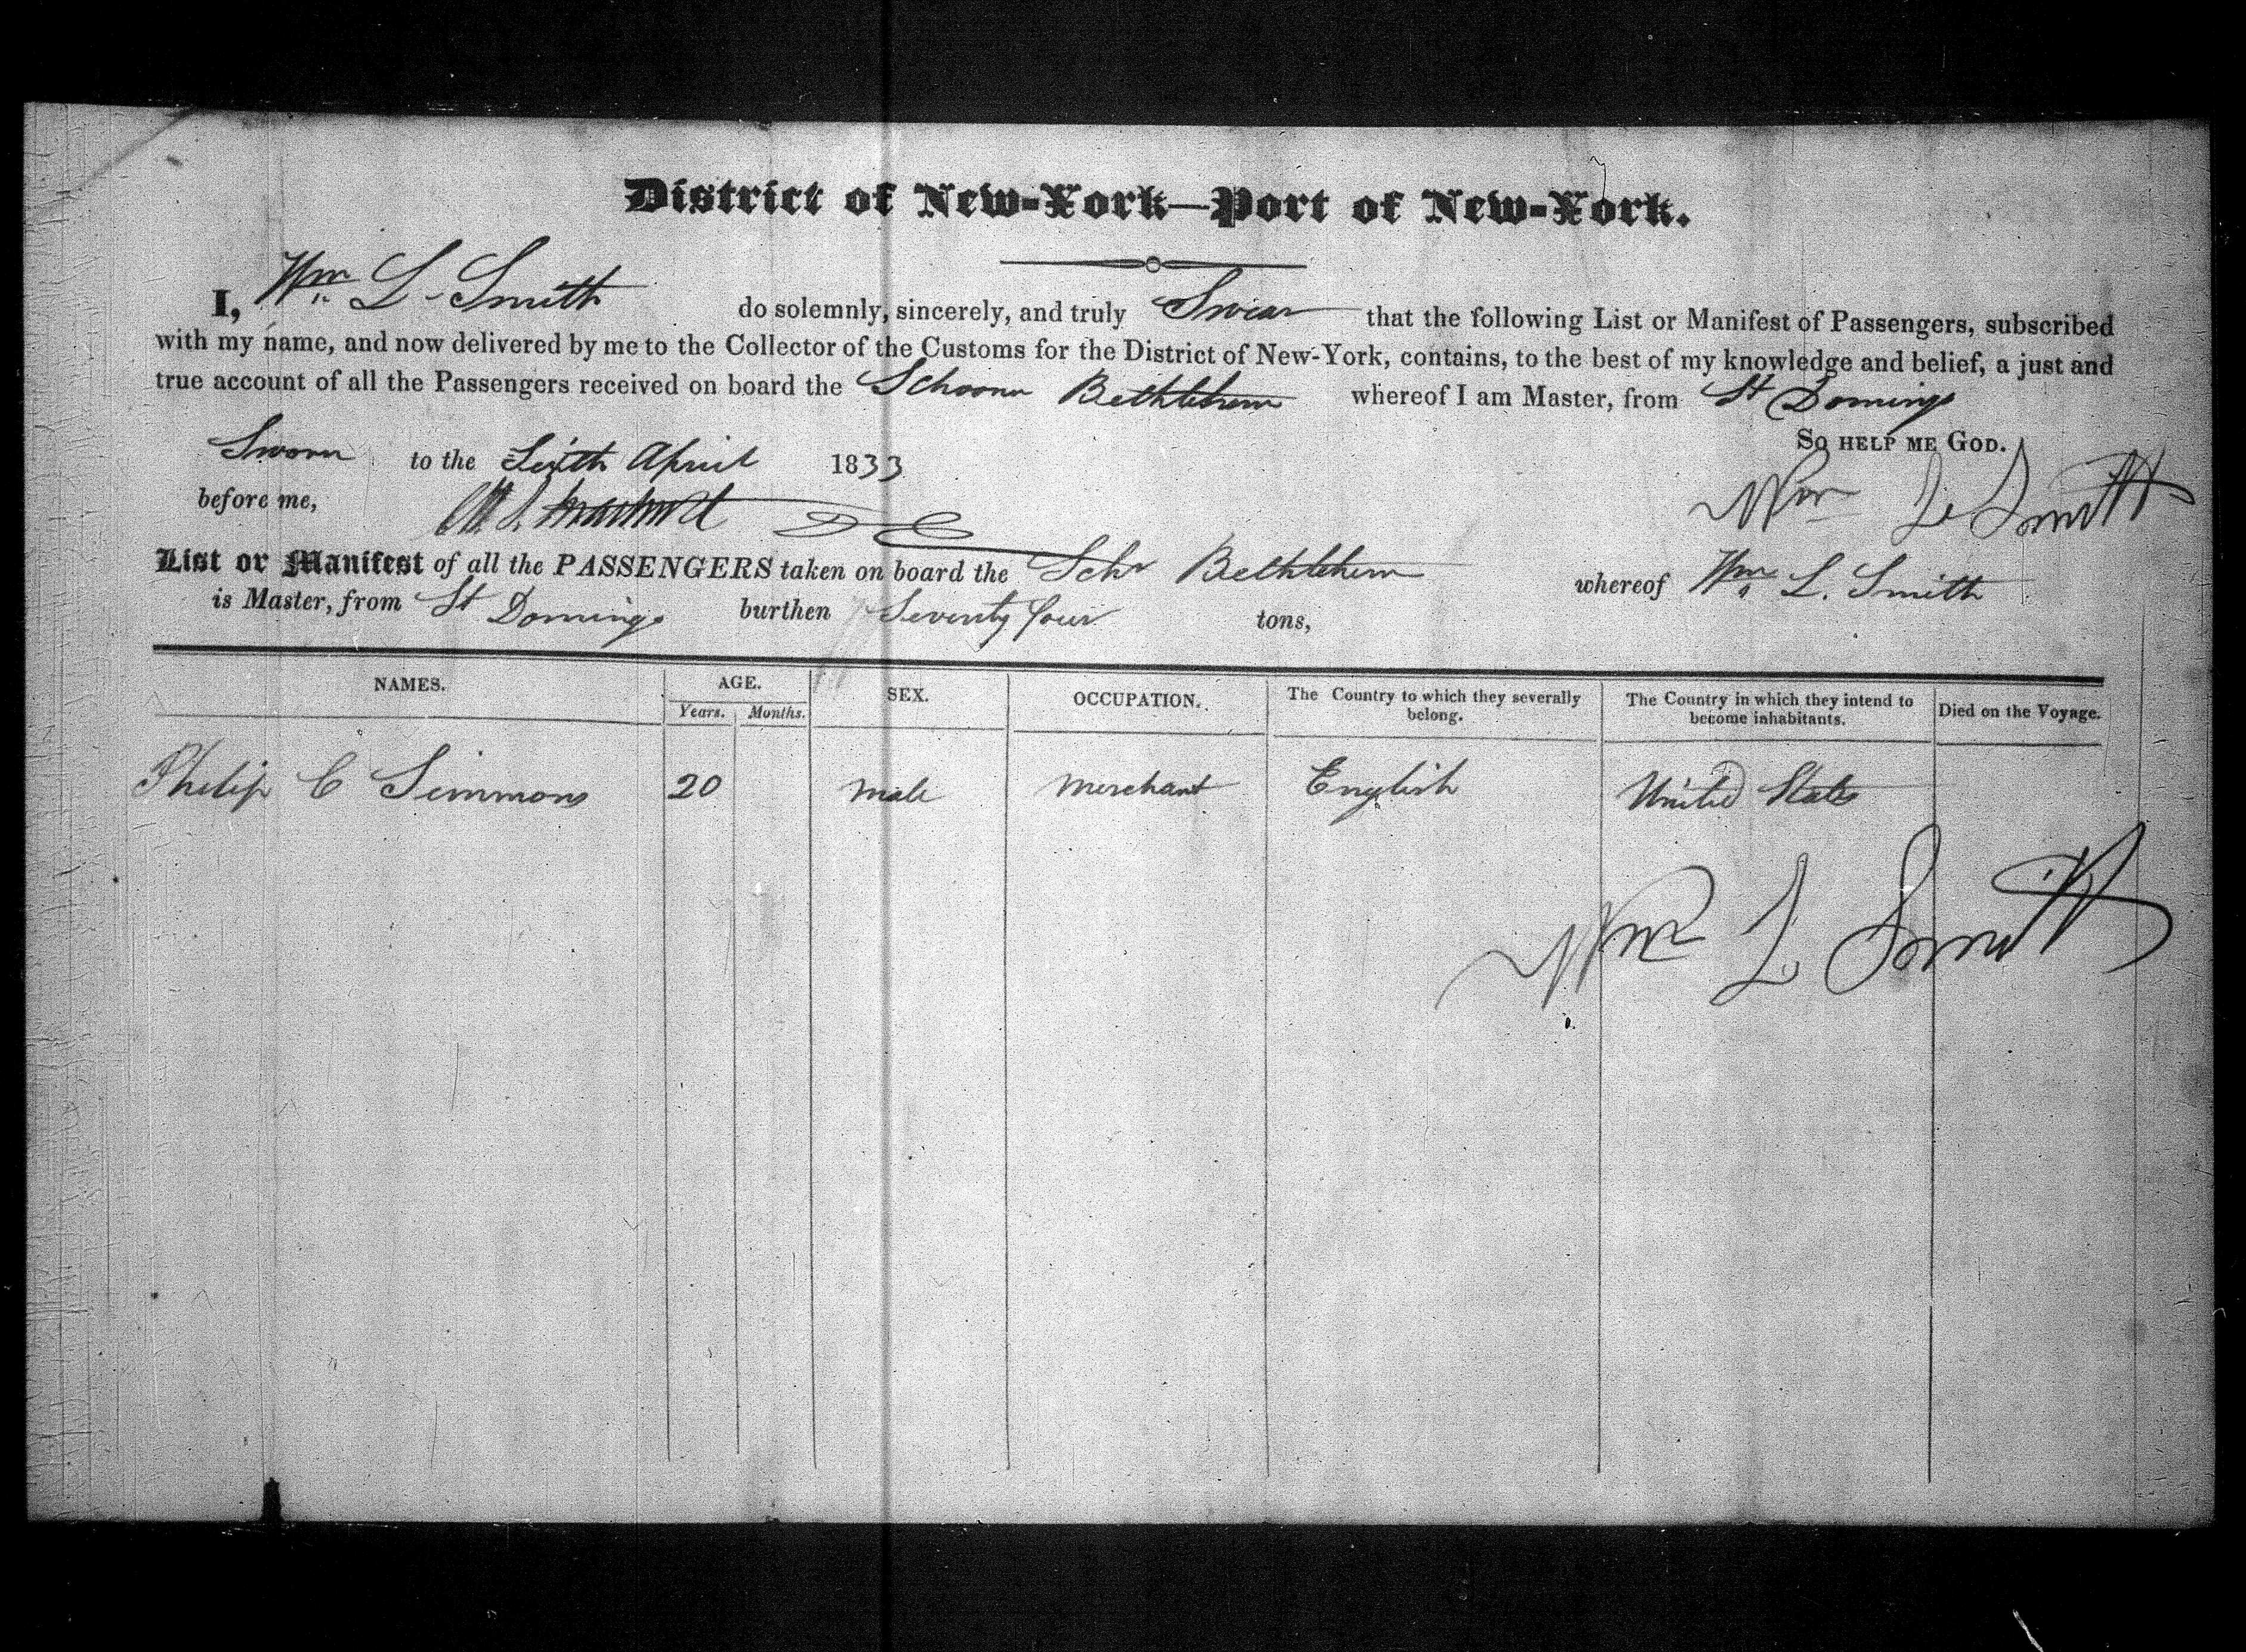 District of New-York—Port of New-York.
I, Wm L. Smith do solemnly, sincerely, and truly Swear that the following List or Manifest of Passengers, subscribed
with my name, and now delivered by me to the Collector of the Customs for the District of New-York, contains, to the best of my knowledge and belief, a just and
true account of all the Passengers received on board the Schooner Bethlehem whereof I am Master, from St Domingo
So help me God.
Sworn to the Sixth April 1833
before me, Wm L Smith
List or Manifest of all the PASSENGERS taken on board the Schr Bethlehem whereof Wm L. Smith
is Master, from St Domingo burthen Seventy four tons,
NAMES. AGE. Years. Months. SEX. OCCUPATION. The Country to which they severally belong. The Country in which they intend to become inhabitants. Died on the Voyage.
Philip C Simmons 20 male Merchant English United States
Wm L Smith